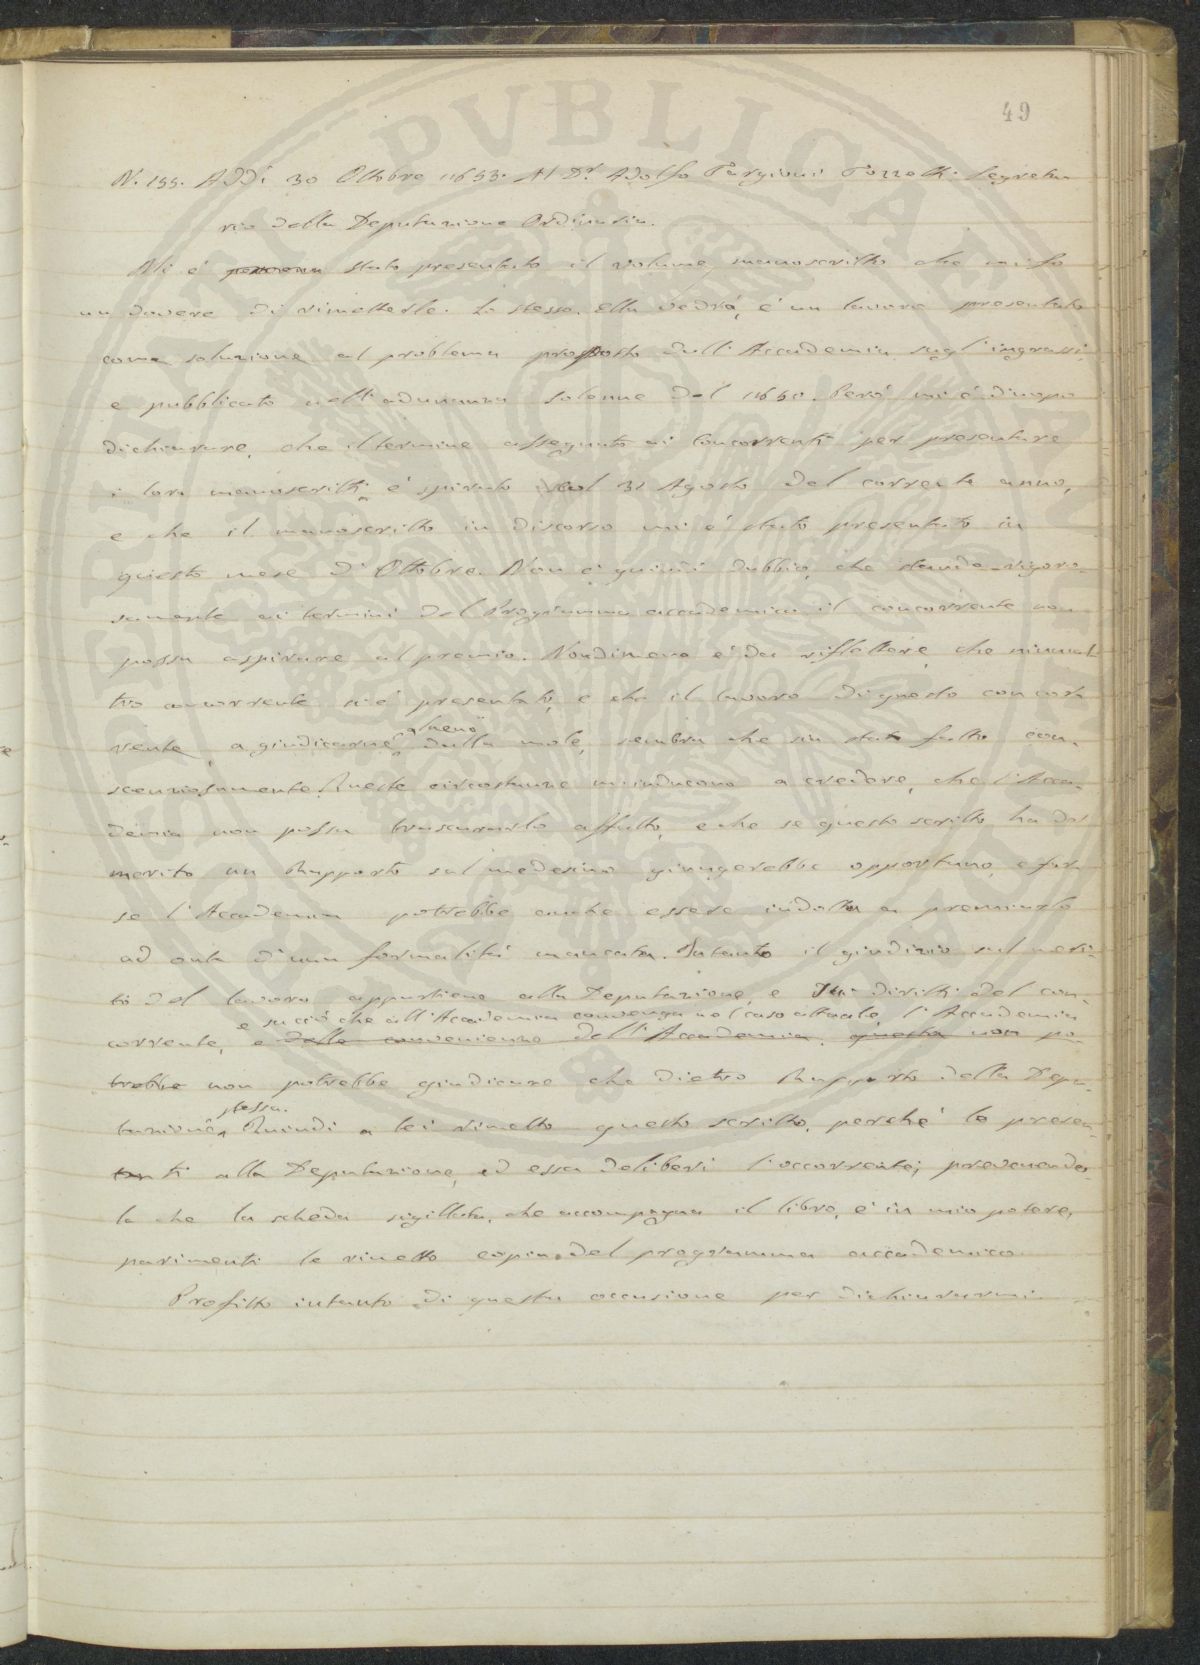 49
N. 155. Addì 30 Ottobre 1853. Al Dr. Adolfo Targioni Tozzetti Segreta-
rio della Deputazione Ordinaria.
Mi è stato presentato il volume manoscritto che mi fo
un dovere di rimetterle. Lo stesso, Ella vedrà, è un lavoro presentato
come soluzione al problema proposto dall'Accademia sugl'ingrassi,
e pubblicato nell'adunanza solenne del 1850. Però mi è d'uopo
dichiarare, che il termine assegnato ai concorrenti per presentare
i loro manoscritti è spirato col 31 Agosto del corrente anno,
e che il manoscritto in discorso mi è stato presentato in
questo mese di Ottobre. Non è quindi dubbio, che stando rigoro-
samente ai termini del Programma accademico il concorrente non
possa aspirare al premio. Nondimeno è da riflettere, che niun al-
tro concorrente si è presentato, e che il lavoro di questo concor-
rente, a giudicarne almeno dalla mole, sembra che sia stato fatto con-
scenziosamente. Queste circostanze m'inducono a credere, che l'Acca-
demia non possa trascurarlo affatto, e che se questo scritto ha del
merito un Rapporto sul medesimo giungerebbe opportuno, e for-
se l'Accademia potrebbe anche essere indotta a premiarlo
ad onta d'una formalità mancata. Intanto il giudizio sul meri-
to del lavoro appartiene alla Deputazione, e sui diritti del con-
e su ciò che all'Accademia convenga nel caso attuale, l'Accademia
corrente, e dalle convenienze dell'Accademia, questa non po-
trebbe non potrebbe giudicare che dietro Rapporto della Depu-
tazione stessa. Quindi a lei rimetto questo scritto, perchè lo presen-
ti alla Deputazione, ed essa deliberi l'occorrente; prevenendo-
la che la scheda sigillata, che accompagna il libro, è in mio potere,
parimenti le rimetto copia del programma accademico
Profitto intanto di questa occasione per dichiararmi